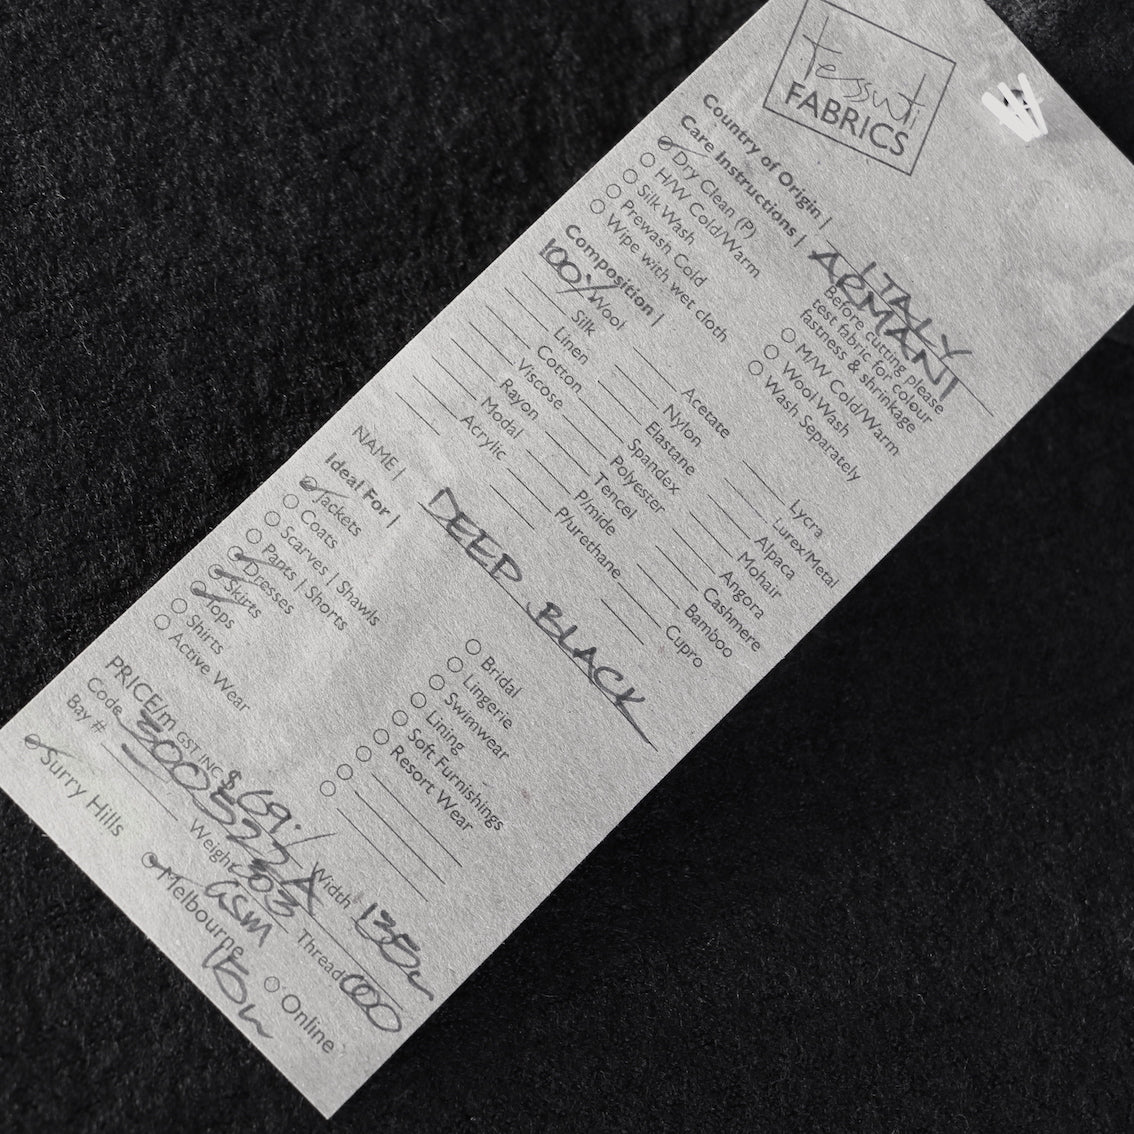 tessuti
FABRICS
Country of Origin | ITALY
Care Instructions | ARMANI
Dry Clean (P)
H/W Cold/Warm
Silk Wash
Prewash Cold
Wipe with wet cloth
Before cutting please
test fabric for colour
fastness & shrinkage
M/W Cold/Warm
Wool Wash
Wash Separately
Composition |
100% Wool
Silk
Linen
Cotton
Viscose
Rayon
Modal
Acrylic
Acetate
Nylon
Elastane
Spandex
Polyester
Tencel
P/mide
P/urethane
Lycra
Lurex/Metal
Alpaca
Mohair
Angora
Cashmere
Bamboo
Cupro
NAME | DEEP BLACK
Ideal For |
Jackets
Coats
Scarves | Shawls
Pants | Shorts
Dresses
Skirts
Tops
Shirts
Active Wear
Bridal
Lingerie
Swimwear
Lining
Soft Furnishings
Resort Wear
PRICE/m GST INC $69.
Width
Code
Weight
GSM
Thread
Bay #
Surry Hills
Melbourne
Online